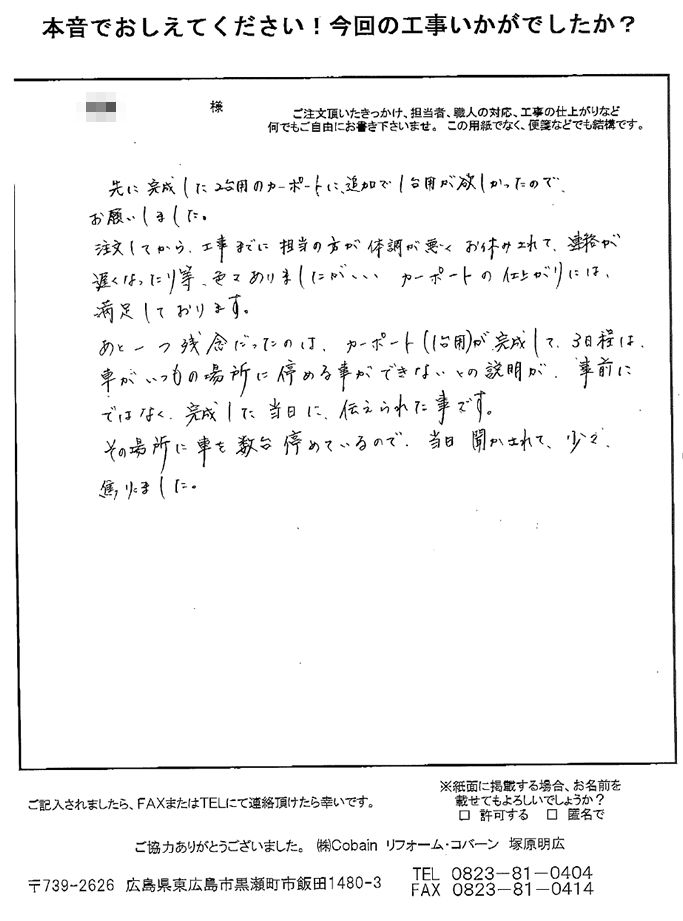 本音でおしえてください！今回の工事いかがでしたか？
様
ご注文頂いたきっかけ、担当者、職人の対応、工事の仕上がりなど
何でもご自由にお書き下さいませ。この用紙でなく、便箋などでも結構です。
先に完成した2台用のカーポートに、追加で1台用が欲しかったので、
お願いしました。
注文してから、工事までに担当の方が体調が悪くお休みされて、連絡が
遅くなったり等、色々ありましたが、、、カーポートの仕上がりには、
満足しております。
あと一つ残念だったのは、カーポート(1台用)が完成して、3日程は、
車がいつもの場所に停める事ができないとの説明が、事前に
ではなく、完成した当日に、伝えられた事です。
その場所に車を数台停めているので、当日聞かされて、少々、
焦りました。
※紙面に掲載する場合、お名前を
載せてもよろしいでしょうか？
□ 許可する □ 匿名で
ご記入されましたら、FAXまたはTELにて連絡頂けたら幸いです。
ご協力ありがとうございました。 ㈱Cobain リフォーム・コバーン 塚原明広
〒739-2626 広島県東広島市黒瀬町市飯田1480-3
TEL 0823-81-0404
FAX 0823-81-0414